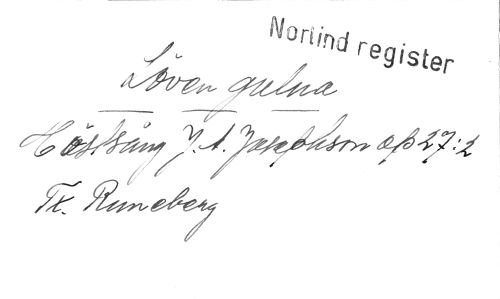 Norlind register
Löven gulna
Höstsång J. A. Josephson op 27:2
Tx. Runeberg